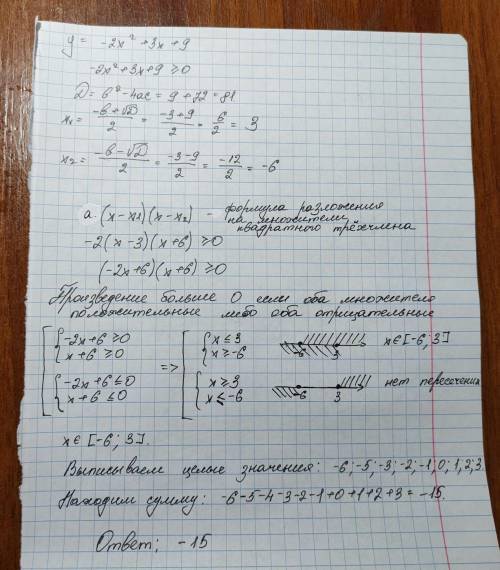 y = -2x² + 3x + 9
-2x² + 3x + 9 ≥ 0
D = b² - 4ac = 9 + 72 = 81
x₁ = (-b + √D)/2 = (-3+9)/2 = 6/2 = 3
x₂ = (-b - √D)/2 = (-3-9)/2 = -12/2 = -6
a·(x-x₁)(x-x₂) - формула разложения
на множители
квадратного трёхчлена
-2(x-3)(x+6) ≥ 0
(-2x+6)(x+6) ≥ 0
Произведение больше 0 если оба множителя
положительные либо оба отрицательные
[ { -2x+6 ≥ 0 => [ { x ≤ 3 -6 3 x∈[-6, 3]
{ x+6 ≥ 0 { x ≥ -6
{ -2x+6 ≤ 0 { x ≥ 3 -6 3 нет пересечения
{ x+6 ≤ 0 { x ≤ -6
x∈[-6; 3].
Выписываем целые значения: -6; -5; -3; -2; -1; 0; 1; 2; 3.
Находим сумму: -6-5-4-3-2-1+0+1+2+3 = -15.
Ответ: -15